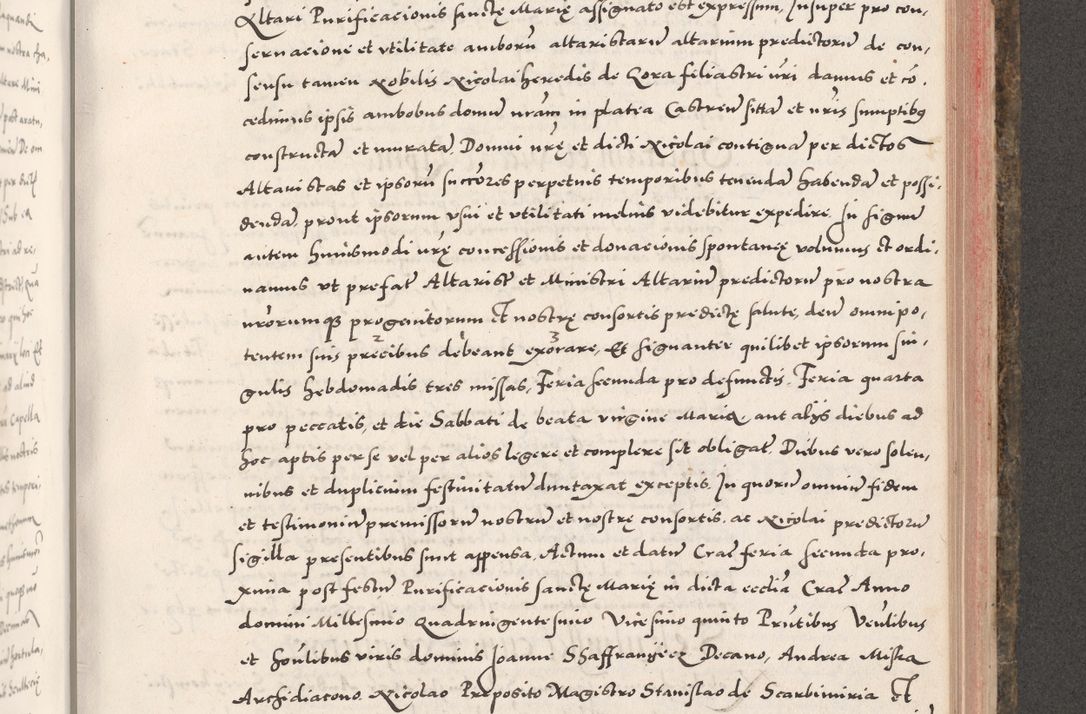 Altari Purificacionis sanctę Marię assignato est expressum, Insuper pro con,
servacione et utilitate amborū altaristarū altarium predictorū de con,
sensu tamen Nobilis Nicolai heredis de Gora feliastri nr̄i damus et cō,
cedimus ipsis ambobus domū nrām in platea Castreñ sittā et nr̄is sumptibq
constructā et muratā, Domui nr̄ę et dicti Nicolai contiguā per dictos
Altaristas et ipsorū succores perpetuis temporibus tenendā habendā et possi,
dendā, prout ipsorum usui et utilitati melius videbitur expedire, In signū
autem huiusmodi nr̄ę concessionis et donacionis spontanęę volumus et ordi,
namus ut prefati Altaristę et Ministri Altariū predictorū pro nostra
nr̄orumqȝ progenitorum Et nostrę consortis predictę salute, deū omnipo,
tentem suis precibus debeant exorare, Et signanter quilibet ipsorum sin,
gulis hebdomadis tres missas, Feria secunda pro defunctis, Feria quarta
pro peccatis, et die Sabbati de beata virgine Maria, aut alijs diebus ad
hoc aptis per se vel per alios legere et complere sit obligat̄, Diebus vero solen,
nibus et duplicium festivitatū duntaxat exceptis, In quorū omniū fidem
et testimoniū premissorū nostrū et nostrę consortis, ac Nicolai predictorū
sigilla presentibus sunt appensa, Actum et datū Crac̄ feria secunda pro,
xima post festū Purificacionis sanctę Marię in dicta ecclīa Crac̄ Anno
domini Millesimo Quadringentesimo Vicesimo quinto Pr̄ntibus Ven̄libus
et hon̄libus viris dominis Joanne Shaffranÿecz Decano, Andrea Miska
Archidiacono, Nicolao Preposito Magistro Stanislao de Scarbimiria Et